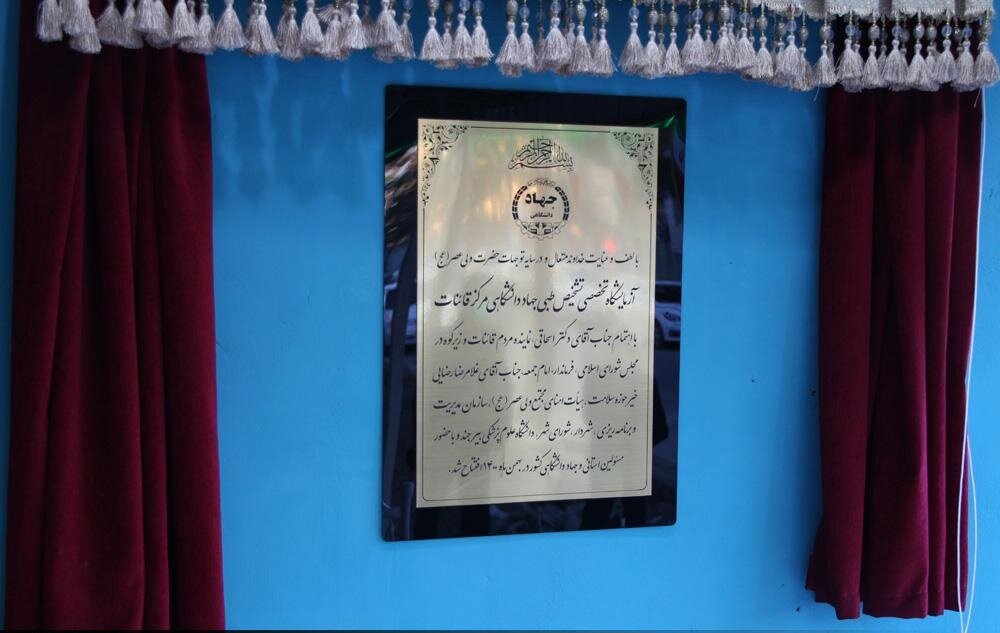 بسم الله الرحمن الرحیم
جهاد
دانشگاهی
با لطف و عنایت خداوند متعال و در سایه توجهات حضرت ولی عصر (عج)
آزمایشگاه تخصصی تشخیص طبی جهاد دانشگاهی مرکز قائنات
با اهتمام جناب آقای دکتر اسحاقی، نماینده مردم قائنات و زیرکوه در
مجلس شورای اسلامی، فرماندار، امام جمعه، جناب آقای غلامرضا رضایی
خیر حوزه سلامت، هیأت امنای مجتمع ولی عصر (عج)، سازمان مدیریت
و برنامه ریزی، شهردار، شورای شهر، دانشگاه علوم پزشکی بیرجند و با حضور
مسئولین استانی و جهاد دانشگاهی کشور در بهمن ماه ۱۴۰۰ افتتاح شد.